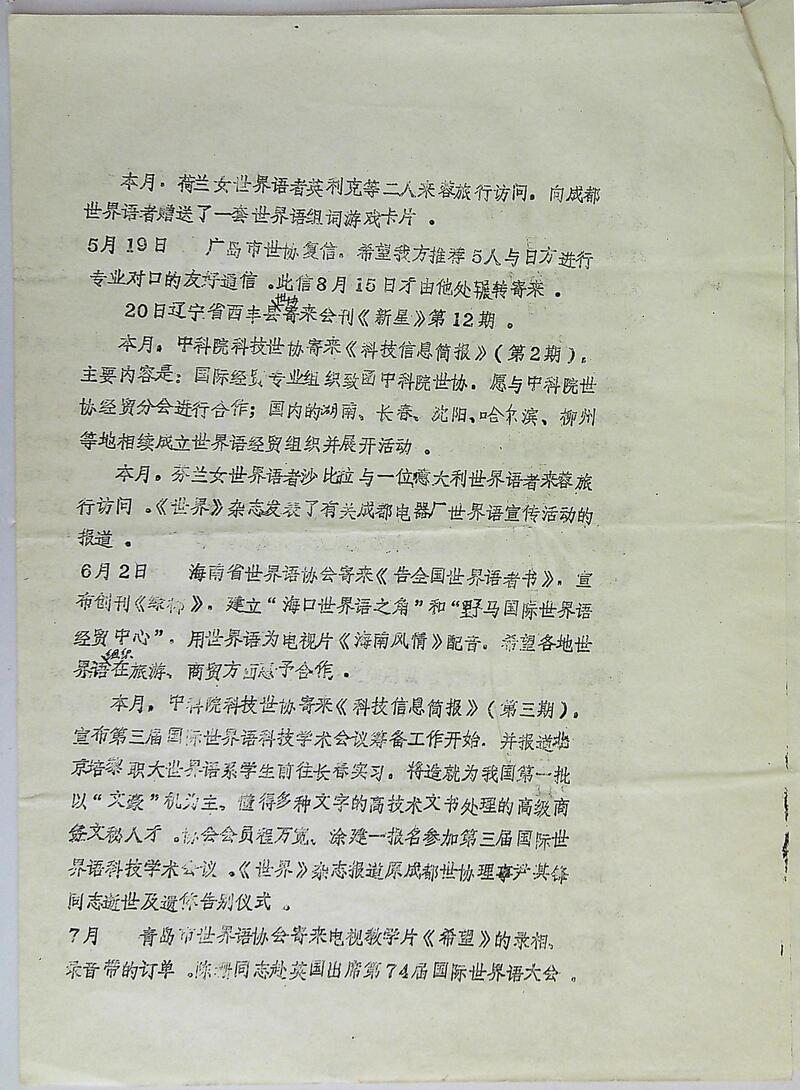 本月，荷兰女世界语者英利克等二人来蓉旅行访问。向成都
世界语者赠送了一套世界语组词游戏卡片。
5月19日 广岛市世协复信。希望我方推荐5人与日方进行
专业对口的友好通信。此信8月15日才由他处辗转寄来。
20日辽宁省西丰县世协寄来会刊《新星》第12期。
本月，中科院科技世协寄来《科技信息简报》（第2期），
主要内容是：国际经贸专业组织致函中科院世协。愿与中科院世
协经贸分会进行合作；国内的湖南、长春、沈阳、哈尔滨、柳州
等地相续成立世界语经贸组织并展开活动。
本月，芬兰女世界语者沙比拉与一位意大利世界语者来蓉旅
行访问。《世界》杂志发表了有关成都电器厂世界语宣传活动的
报道。
6月2日 海南省世界语协会寄来《告全国世界语者书》，宣
布创刊《绿椰》，建立“海口世界语之角”和“野马国际世界语
经贸中心”，用世界语为电视片《海南风情》配音。希望各地世
界语组织在旅游、商贸方面惠予合作。
本月，中科院科技世协寄来《科技信息简报》（第三期），
宣布第三届国际世界语科技学术会议筹备工作开始．并报道北
京培黎职大世界语系学生前往长春实习。将造就为我国第一批
以“文豪”机为主、懂得多种文字的高技术文书处理的高级商
务文秘人才。协会会员程万宽、涂建一报名参加第三届国际世
界语科技学术会议。《世界》杂志报道原成都世协理事尹其锋
同志逝世及遗体告别仪式。
7月 青岛市世界语协会寄来电视教学片《希望》的录相、
录音带的订单。陈同志赴英国出席第74届国际世界语大会。